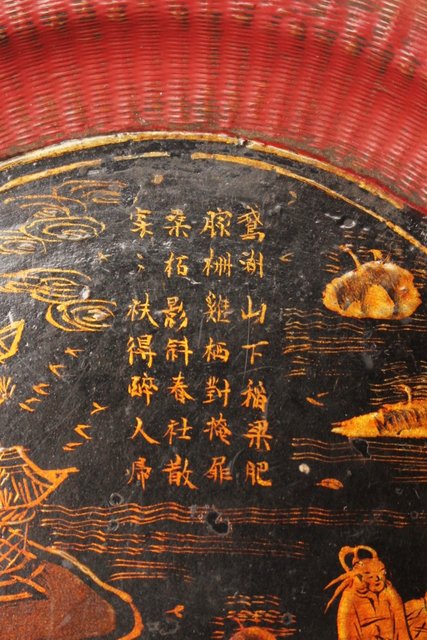 鵞湖山下稲粱肥
豚柵雞栖對掩扉
桑柘影斜春社散
家〻扶得醉人歸